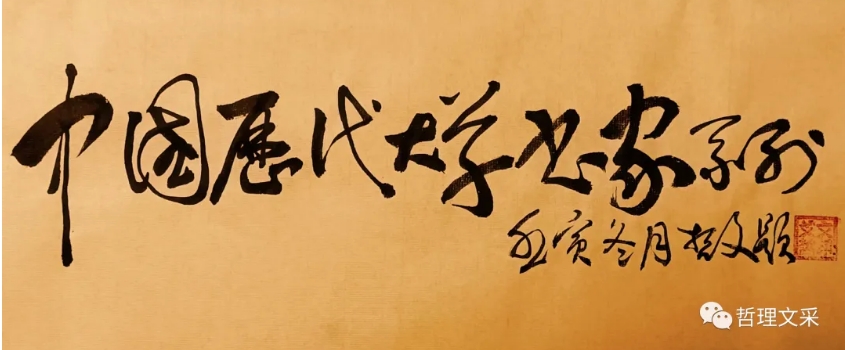 中國歷代大学书家系列
壬寅冬月 题
哲理文采